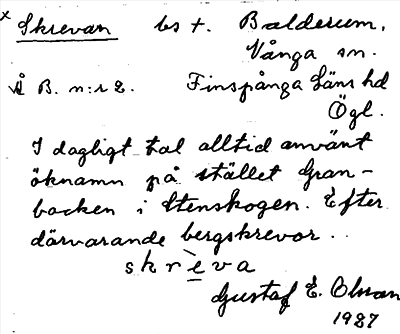 x Skrevan bs t. Balderum,
Vånga sn.
Å B. n:r 2. Finspånga läns hd
Ögl.
I dagligt tal alltid använt
öknamn på stället Gran-
backen i Stenskogen. Efter
därvarande bergskrevor.
skrèva
Gustaf E. Olsson
1927